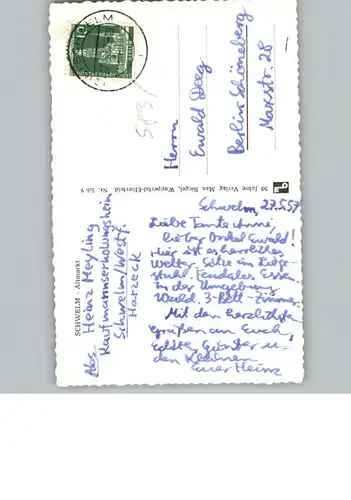 SCHWELM
12
5831
Herrn
Ewald Deeg
Berlin Schöneberg
Maxstr. 28
50 Jahre Verlag Max Biegel, Wuppertal-Elberfeld, Nr. Sch 9
SCHWELM - Altmarkt
Abs Heinz Meyling
Kaufmannserholungsheim
Schwelm/Westf.
Harzeck
Schwelm, 27.5.57
Liebe Tante Anni,
lieber Onkel Ewald!
Hier ist es herrliches
Wetter. Sitze im Liege-
stuhl. Feudales Essen
In der Umgebung
Wald. 3-Bett-Zimmer.
Mit den herzlichsten
Grüßen an Euch,
Edith, Günter u.
den Kleinen
Euer Heinz